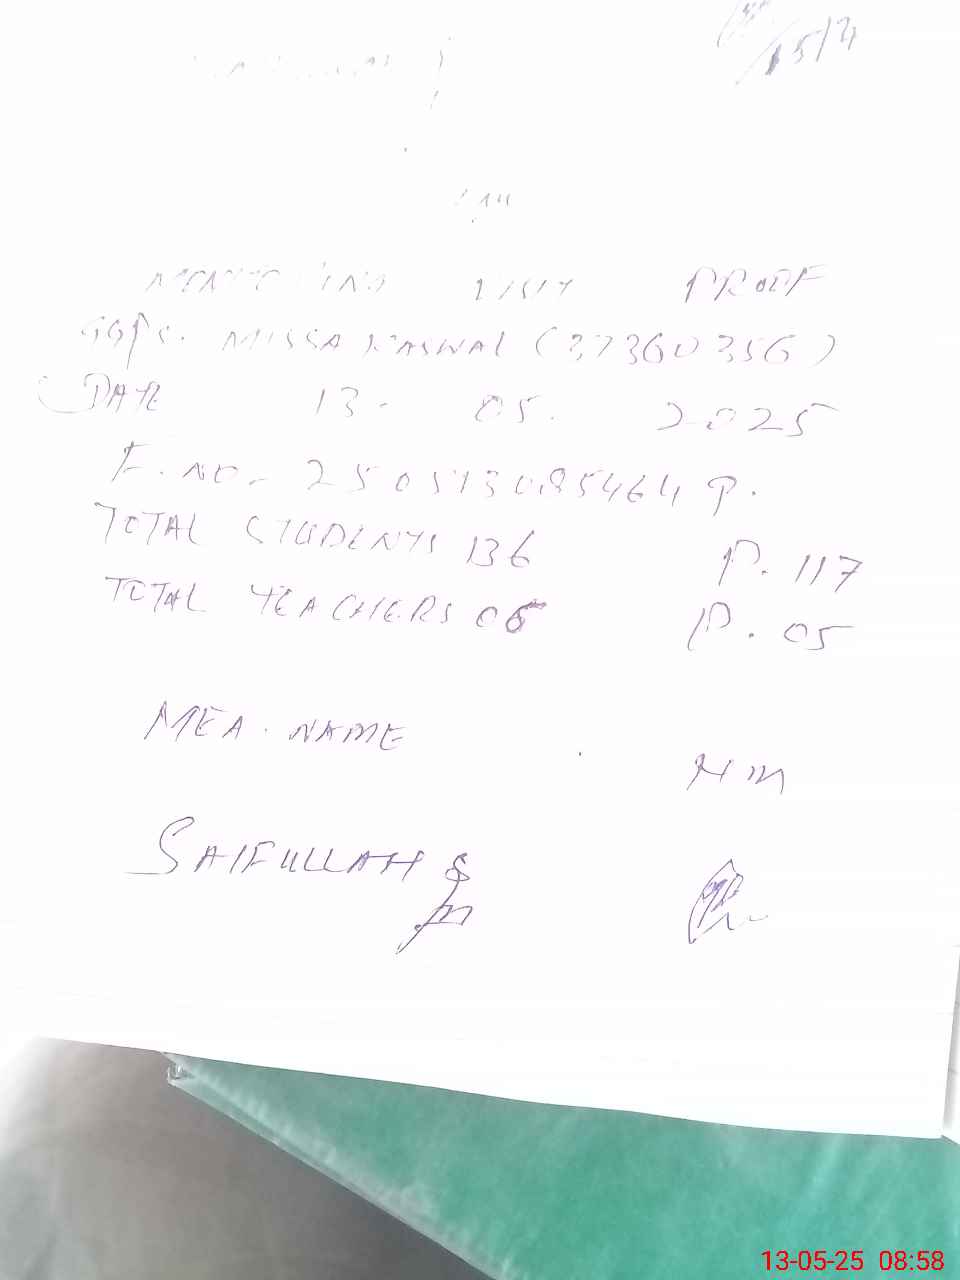 15/4
MONITORING VISIT PROOF
GGPS. MISSA KASWAL (37360356)
DATE 13. 05. 2025
F. NO. 250513085464 P.
TOTAL STUDENTS 136 P. 117
TOTAL TEACHERS 06 P. 05
MEA. NAME
H M
SAIFULLAH
13-05-25 08:58